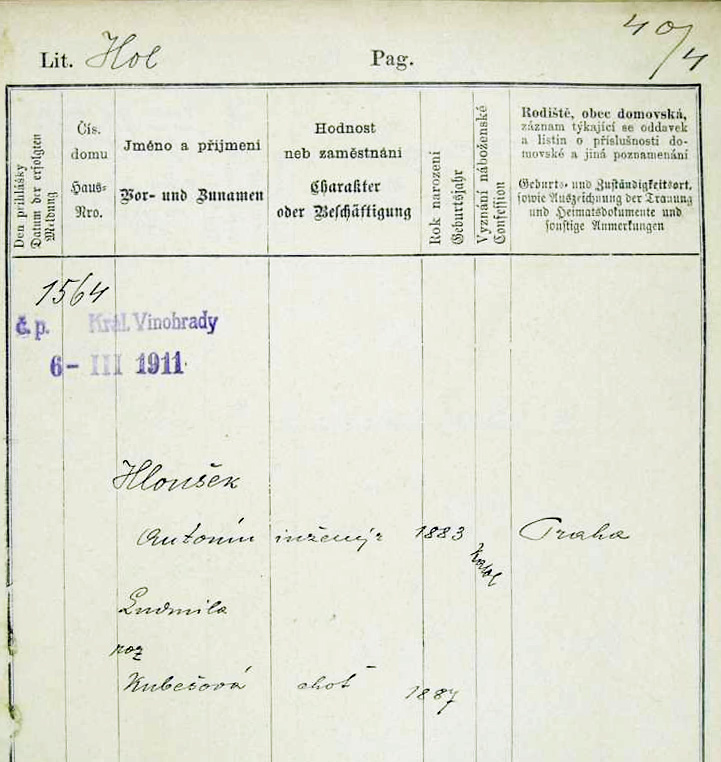 40/4
Lit. Hol Pag.
Den přihlášky
Datum der erfolgten
Meldung
Čís.
domu
Haus-
Nro.
Jméno a příjmení
Vor- und Zunamen
Hodnost
neb zaměstnání
Charakter
oder Beschäftigung
Rok narození
Geburtsjahr
Vyznání náboženské
Confession
Rodiště, obec domovská,
záznam týkající se oddavek
a listin o příslušnosti do-
movské a jiná poznamenání
Geburts- und Zuständigkeitsort,
sowie Auszeichnung der Trauung
und Heimatsdokumente und
sonstige Anmerkungen
1564
č. p. Král. Vinohrady
6- III 1911
Hloušek
Antonín inženýr 1883 Praha
katol
Ludmila
roz
Kubešová choť 1887